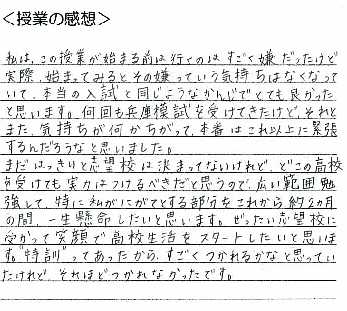 <授業の感想>
私は、この授業が始まる前は行くのはすごく嫌だったけど
実際、始まってみるとその嫌っていう気持ちはなくなって
いて、本当の入試と同じようなかんじでとても良かった
と思います。何回も兵庫模試を受けてきたけど、それと
また、気持ちが何かちがって、本番はこれ以上に緊張
するんだろうなと思いました。
まだはっきりと志望校は決まってないけれど、どこの高校
を受けても実力はつけるべきだと思うので、広い範囲勉
強して、特に私がにがてとする部分をこれから約2ヵ月
の間、一生懸命したいと思います。ぜったい志望校に
受かって笑顔で高校生活をスタートしたいと思いま
す。"特訓"ってあったから、すごくつかれるかなと思ってい
たけれど、それほどつかれなかったです。